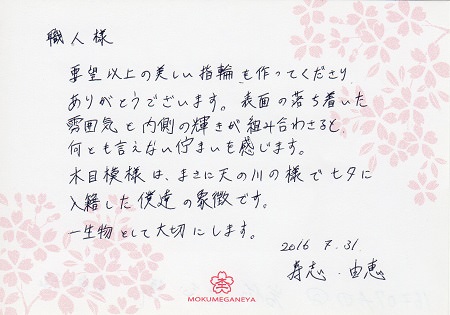 職人様
要望以上の美しい指輪を作ってくださり
ありがとうございます。表面の落ち着いた
雰囲気と内側の輝きが組み合わさると
何とも言えない佇まいを感じます。
木目模様は、まさに天の川の様で七夕に
入籍した僕達の象徴です。
一生物として大切にします。
2016 7.31.
寿志・由恵
MOKUMEGANEYA